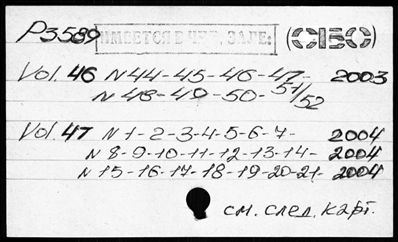 P3589 ИМЕЕТСЯ В ЧИТ. ЗАЛЕ: (СІБС)
Vol. 46 N 44-45-46-47- 2003
N 48-49-50-51/52
Vol. 47 N 1-2-3-4-5-6-7- 2004
N 8-9-10-11-12-13-14- 2004
N 15-16-17-18-19-20-21- 2004
см. след. карт.